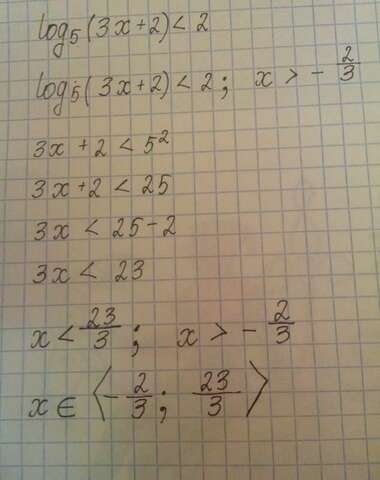 log₅(3x+2)<2
log₅(3x+2)<2; x>-2/3
3x+2<5²
3x+2<25
3x<25-2
3x<23
x<23/3; x>-2/3
x∈⟨-2/3; 23/3⟩